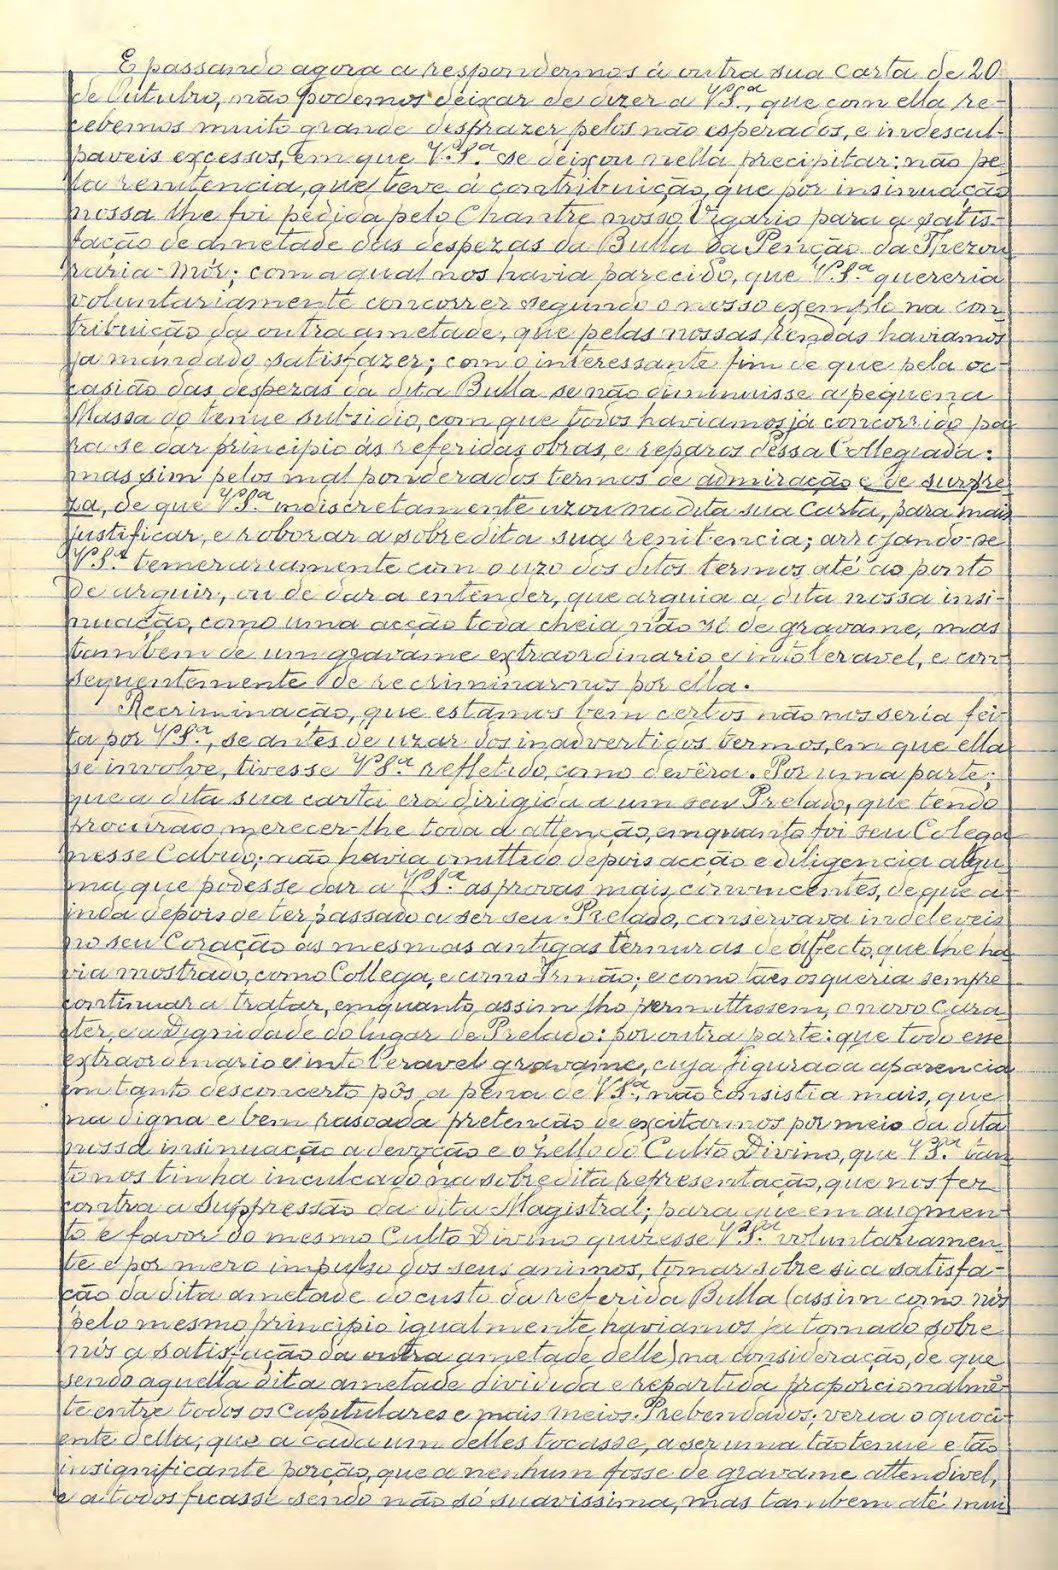 E passando agora a respondermos á outra sua Carta de 20
de Outubro, não podemos deixar de dizer a V.S.ª, que com ella re-
cebemos muito grande desprazer pelos não esperados, e indescul-
paveis excessos, em que V.S.ª se deixou nella precipitar: não pe-
la renitencia, que teve á contribuição, que por insinuação
nossa lhe foi pedida pelo Chantre nosso Vigario para a satis-
fação de ametade das despezas da Bulla da Penção da Thezou
raria-Mór; com a qual nos havia parecido, que V.S.ª quereria
voluntariamente concorrer segundo o nosso exemplo na con
tribuição da outra ametade, que pelas nossas rendas haviamos
já mandado satisfazer; com o interessante fim de que pela oc-
casião das desperas da dita Bulla se não diminuisse a pequena
Massa do tenue subsidio, com que todos haviamos já concorrido pa
ra se dar principio ás referidas obras, e reparos dessa Collegiada:
mas sim pelos mal ponderados termos de admiração e de surpre
za, de que V.S.ª indiscretamente uzou na dita sua Carta, para mais
justificar, e roborar a sobredita sua renitencia; arrojando-se
V.S.ª temerariamente com o uzo dos ditos termos até ao ponto
de arguir, ou de dar a entender, que arguia a dita nossa insi-
nuação, como uma acção toda cheia não só de gravame, mas
tambem de um gravame extraordinario e intoleravel, e con-
sequentemente de recriminarnos por ella.
Recriminação, que estamos bem certos não nos seria fei-
ta por V.S.ª, se antes de uzar dos inadvertidos termos, em que ella
se involve, tivesse V.S.ª refletido, como devêra. Por uma parte;
que a dita sua carta era dirigida a um seu Prelado, que tendo
procurado merecer-lhe toda a attenção, emquanto foi seu Colega
nesse Cabido; não havia omittido depois acção e diligencia algu-
ma que podesse dar a V.S.ª as provas mais convincentes, de que a-
inda depois de ter passado a ser seu Prelado, conservava indeleveis
no seu Coração as mesmas antigas ternuras de affecto, que lhe ha
via mostrado, como Collega, e como Irmão; e como taes os queria sempre
continuar a tratar, emquanto assim lho permittissem, o novo Cara-
ter, e a Dignidade do lugar de Prelado: por outra parte: que todo esse
extraordinario e intoleravel gravame, cuja figurada aparencia
em tanto desconcerto pôs a pena de V.S.ª, não consistia mais, que
na digna e bem rasoada pretenção de excitarmos por meio da dita
nossa insinuação a devoção e o zello do Culto Divino, que V.S.ª tan
to nos tinha inculcado na sobredita representação, que nos fez
contra a Suppressão da dita Magistral; para que em augmen-
to e favor do mesmo Culto Divino quizesse V.S.ª voluntariamen-
te e por mero impulso dos seus animos, tomar sobre si a satisfa-
ção da dita ametade do custo da referida Bulla (assim como nós
pelo mesmo principio igualmente haviamos ja tomado sobre
nós a satisfação da outra ametade delle) na consideração, de que
sendo aquella dita ametade dividida e repartida proporcionalmẽ-
te entre todos os Capitulares e mais meios Prebendados; veria o quoci-
ente della, que a cada um delles tocasse, a ser uma tão tenue e tão
insignificante porção, que a nenhum fosse de gravame attendivel,
e a todos ficasse sendo não só suavissima, mas tambem até mui